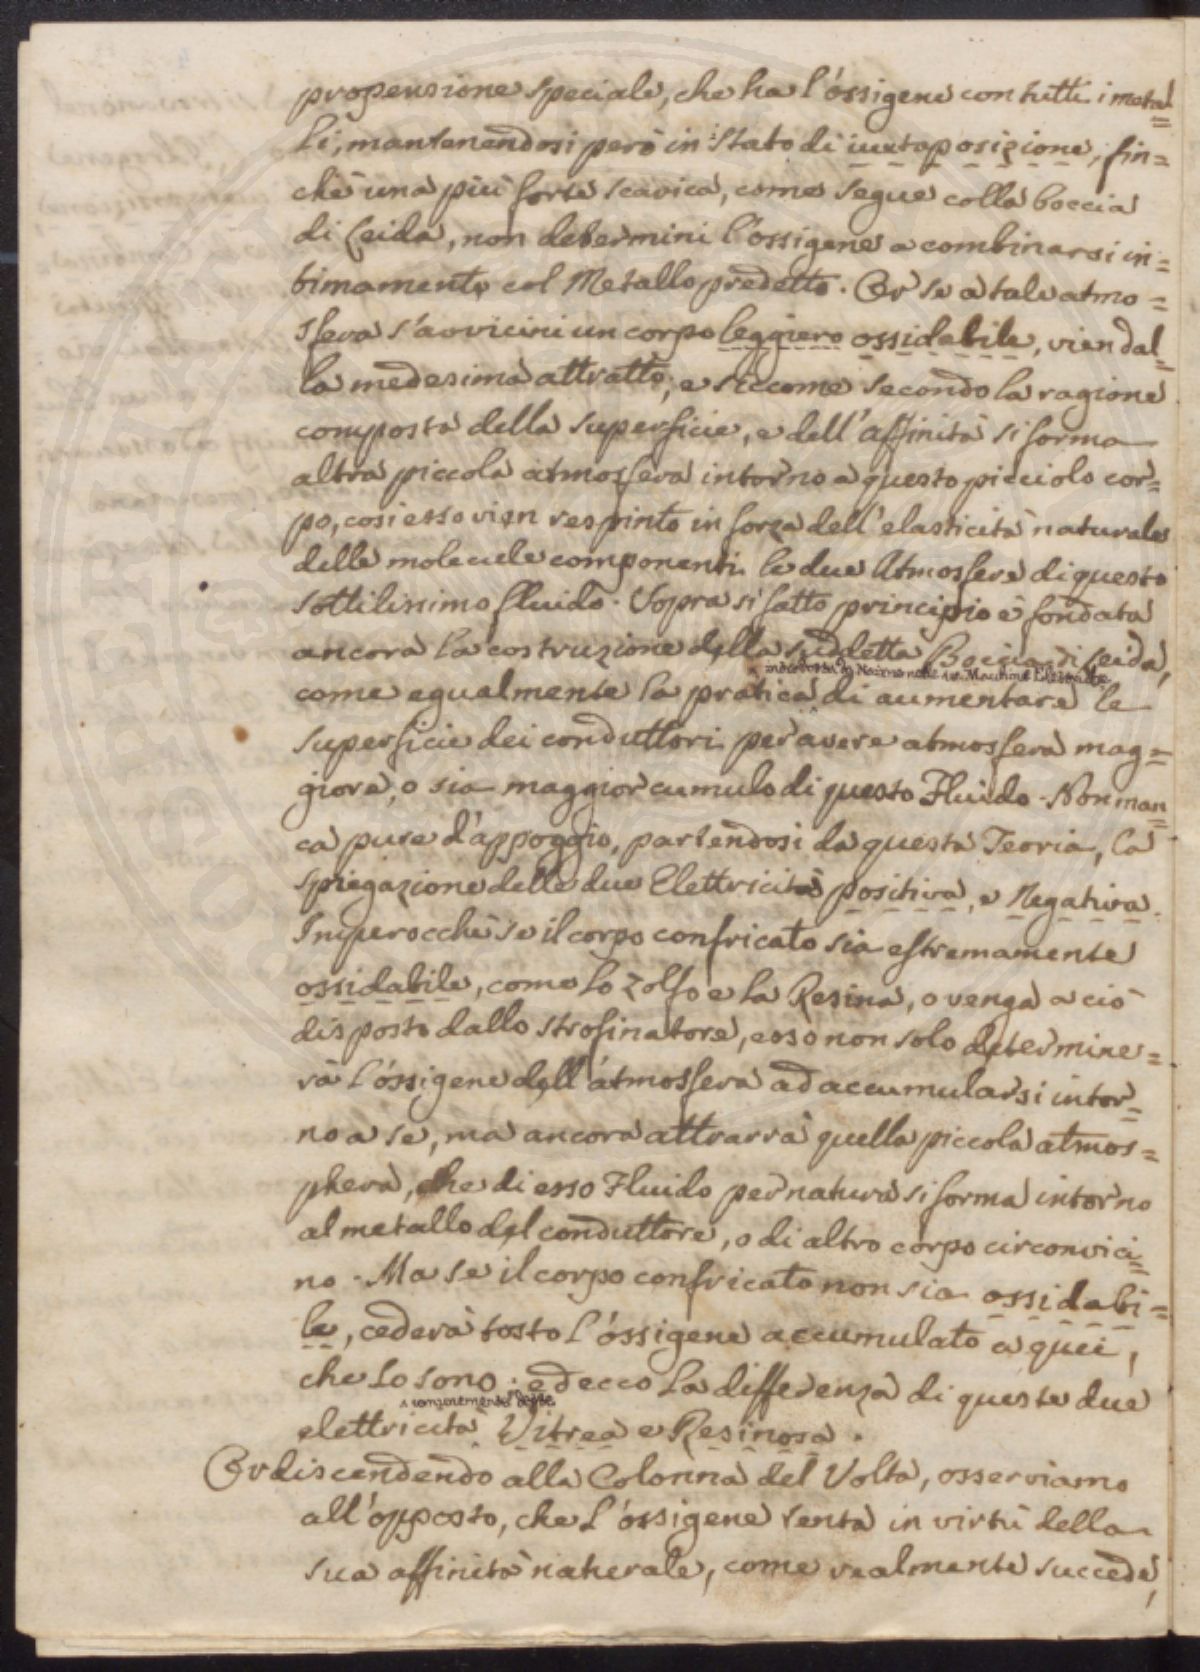 propensione speciale, che ha l'ossigene con tutti i metal=
li, mantenendosi però in stato di iuxtaposizione, fin=
chè una più forte scarica, come segue colla boccia
di Leida, non determini l'ossigene a combinarsi in=
timamente col Metallo predetto. Or se a tale atmo=
sfera s'avvicini un corpo leggiero ossidabile, vien dal=
la medesima attratto; e siccome secondo la ragione
composta della superficie, e dell'affinità si forma
altra piccola atmosfera intorno a questo picciolo cor=
po, così esso vien respinto in forza dell'elasticità naturale
delle molecule componenti le due Atmosfere di questo
sottilissimo fluido. Sopra sì fatto principio è fondata
ancora la costruzione della suddetta Boccia di Leida,
come egualmente la pratica di aumentare le
superficie dei conduttori per avere atmosfera mag=
giore, o sia maggior cumulo di questo Fluido. Non man=
ca pure d'appoggio, partendosi da questa Teoria, la
spiegazione delle due Elettricità positiva, e Negativa.
Imperocchè se il corpo confricato sia estremamente
ossidabile, come lo zolfo e la Resina, o venga a ciò
disposto dallo strofinatore, esso non solo determine=
rà l'ossigene dell'atmosfera ad accumularsi intor=
no a se, ma ancora attrarrà quella piccola atmos=
phera, che di esso Fluido per natura si forma intorno
al metallo del conduttore, o di altro corpo circonvici=
no. Ma se il corpo confricato non sia ossidabi=
le, cederà tosto l'ossigene accumulato a quei,
che lo sono: ed ecco la differenza di queste due
elettricità Vitrea e Resinosa.
Or discendendo alla Colonna del Volta, osserviamo
all'opposto, che l'ossigene tenta in virtù della
sua affinità naturale, come realmente succede,